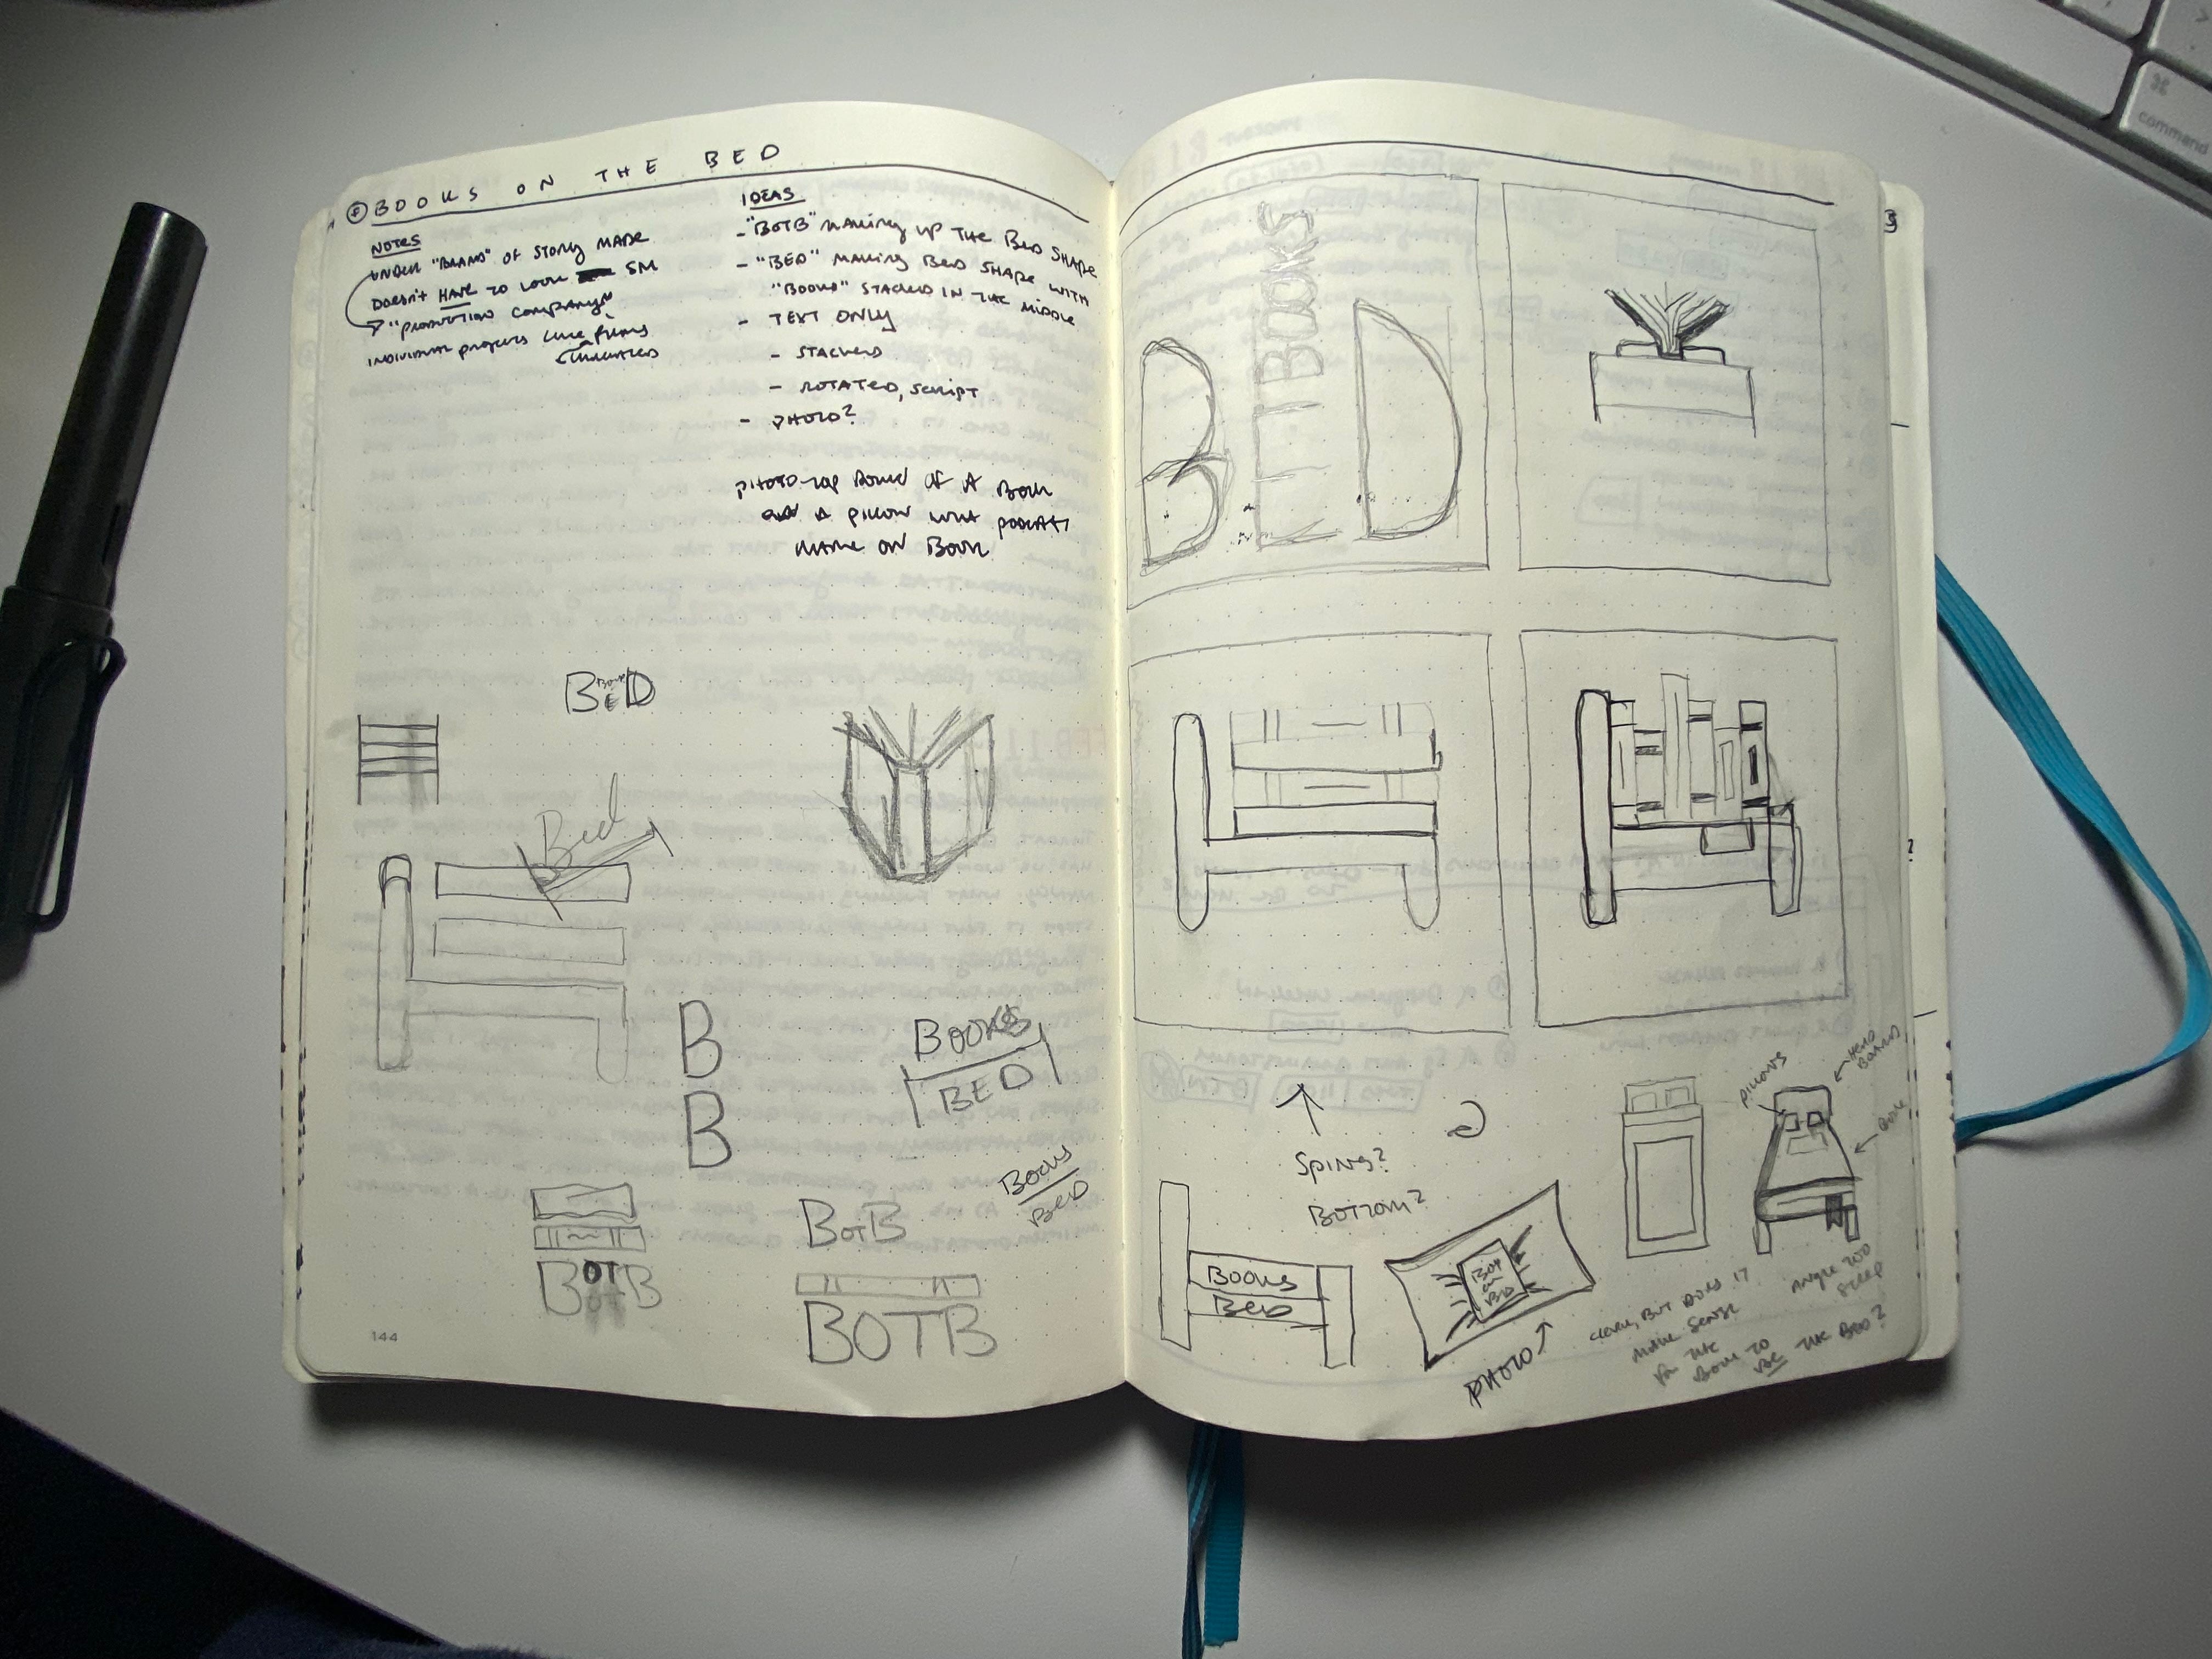 BOOKS ON THE BED
NOTES
UNDER "BRAND" OF STORY MADE
DOESN'T HAVE TO LOOK SM
"PRODUCTION COMPANY"
INDIVIDUAL PROJECTS LIKE FILMS
IDEAS
- "BOTB" MAKING UP THE BED SHAPE
- "BED" MAKING BED SHAPE WITH
"BOOKS" STACKED IN THE MIDDLE
- TEXT ONLY
- STACKED
- ROTATED, SCRIPT
- PHOTO?
PHOTO-TOP DOWN OF A BOOK
A PILLOW WITH PODCAST
NAME ON BOOK
BED
Bed
B
B
BOOKS
BED
BOOKS
BED
BOTB
BOTB
BOTB
144
BOOKS
BED
SPINE?
BOTTOM?
BOOKS
BED
BED
PHOTO
PILLOWS
HEAD
BOARD
BOOK
ANGLE TOO
STEEP
CLEVER, BUT DOES IT
MAKE SENSE
FOR THE
BOOK TO
BE THE BED?
command